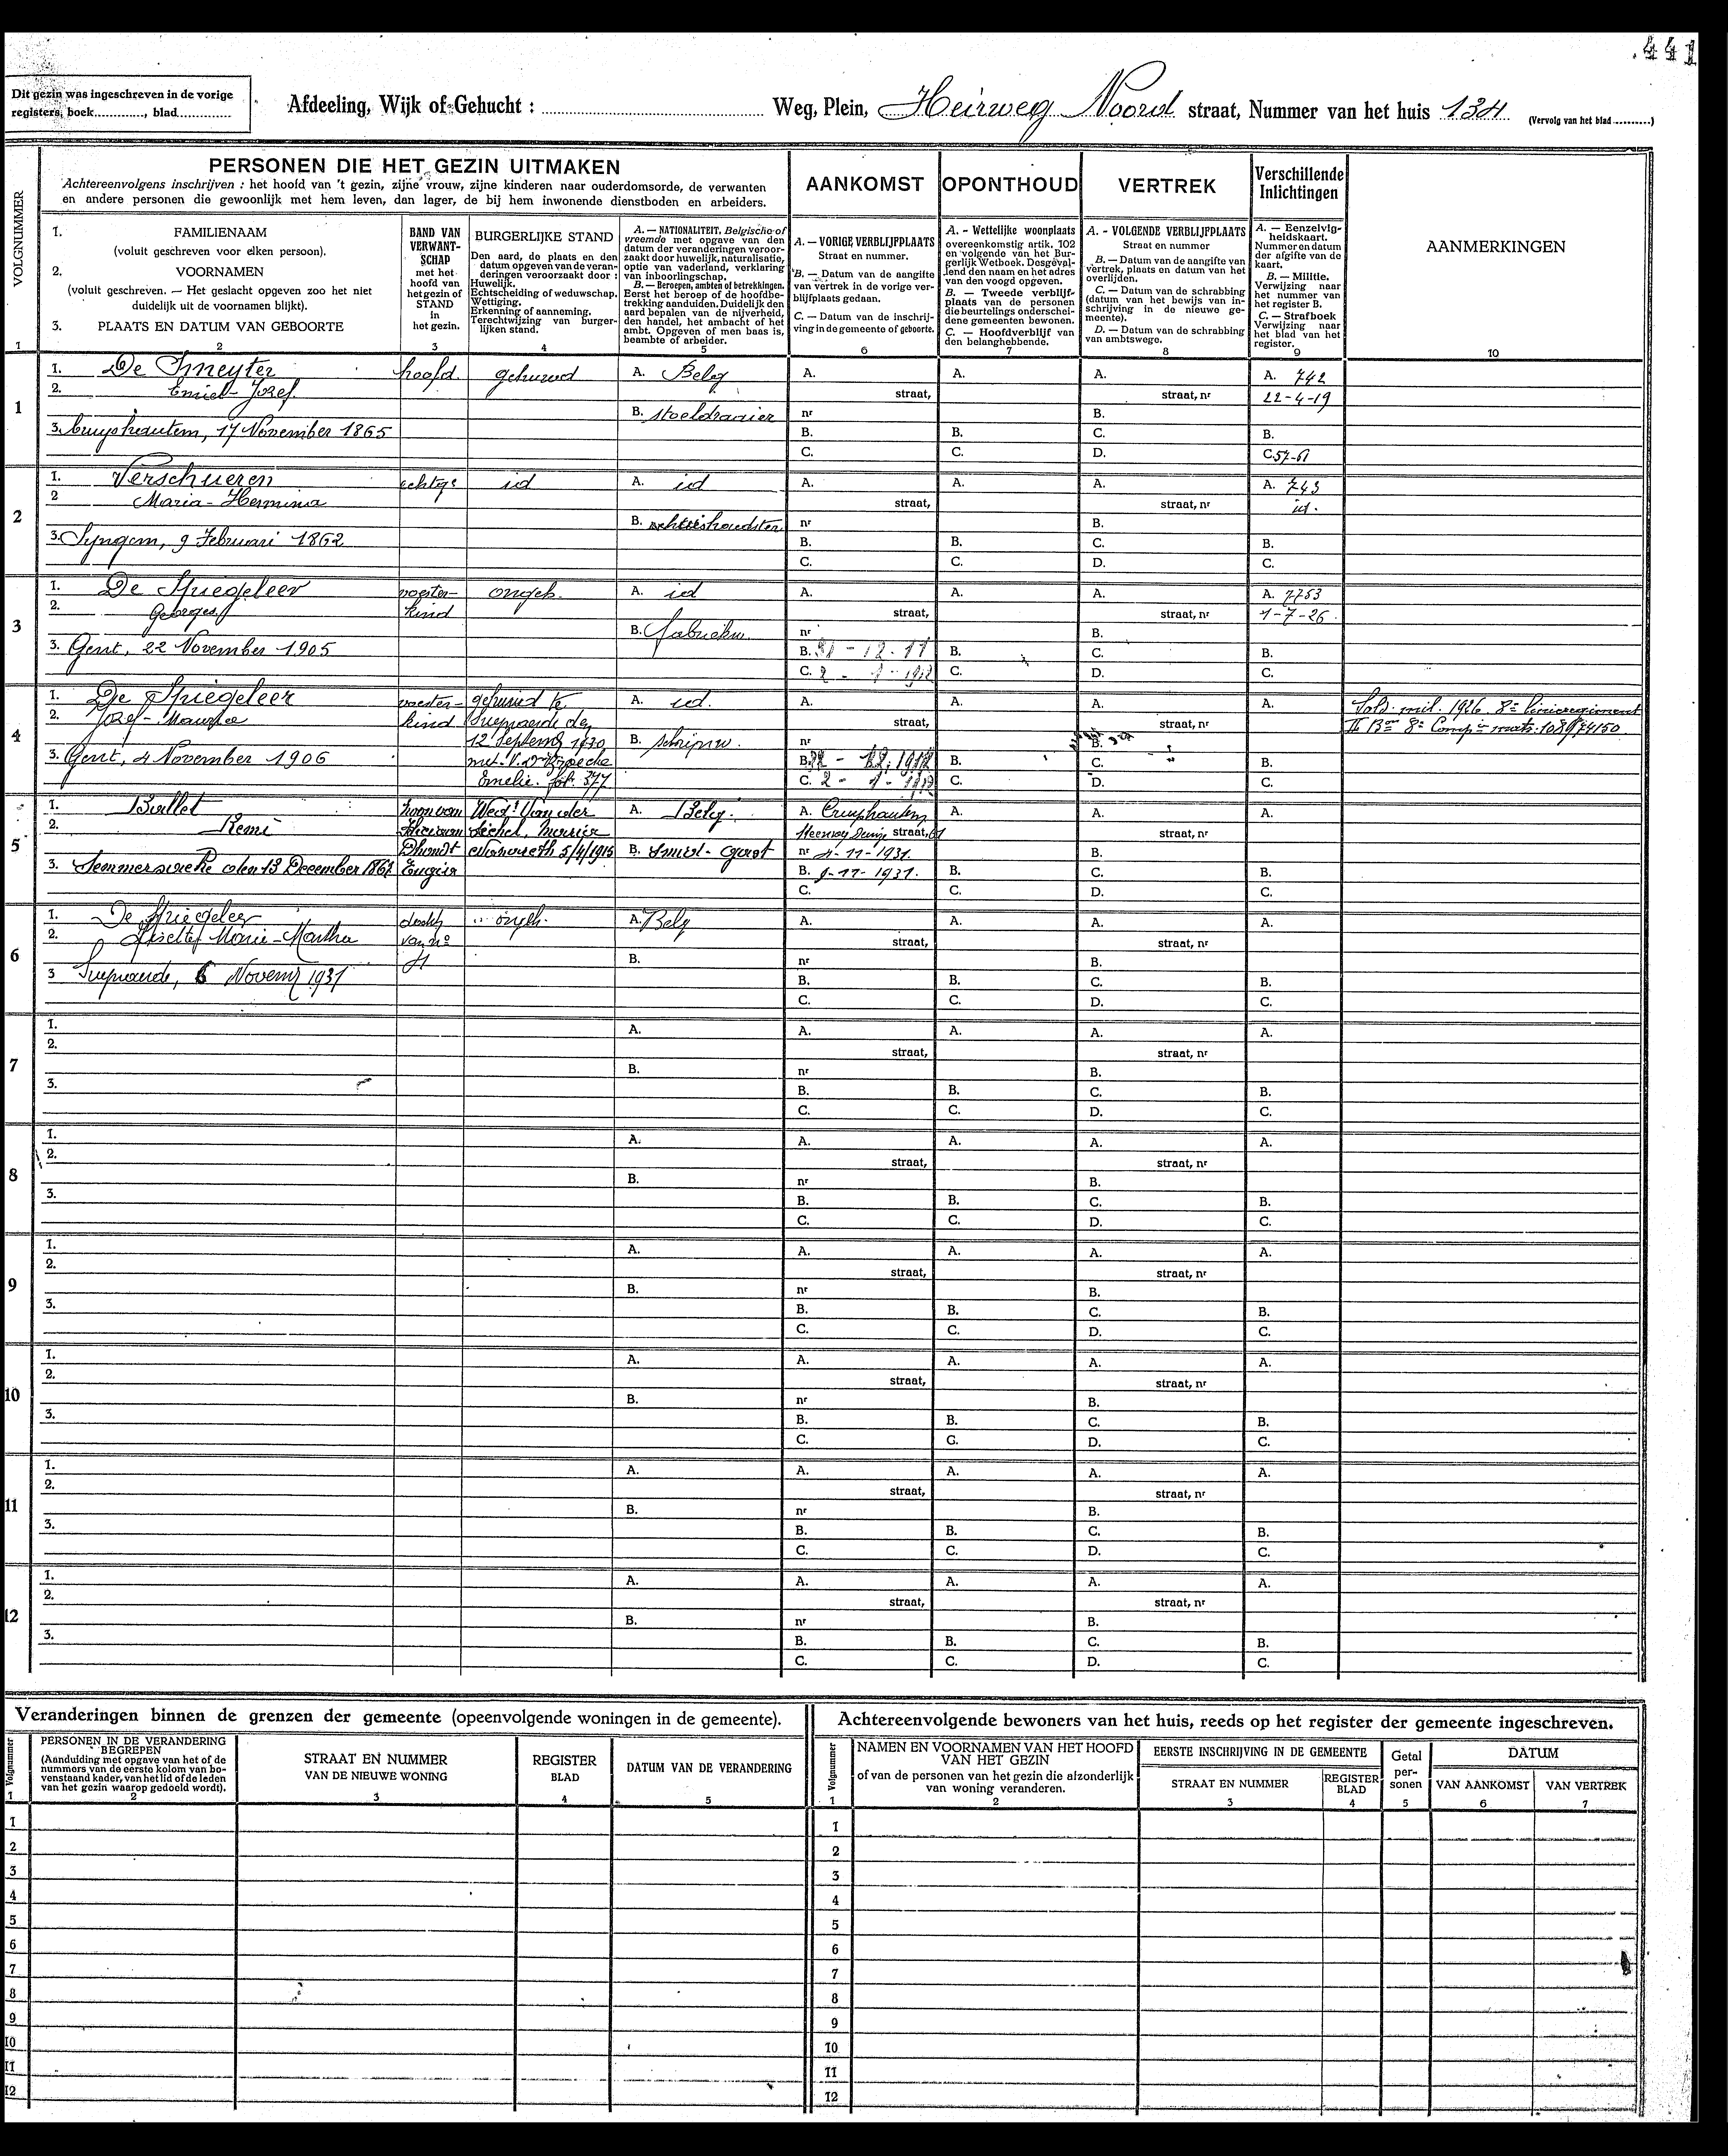 441
Dit gezin was ingeschreven in de vorige
registers, boek............, blad..............
Afdeeling, Wijk of Gehucht : .............. Weg, Plein, Heirweg Noord straat, Nummer van het huis 134 (Vervolg van het blad ..........)
VOLGNUMMER
1
PERSONEN DIE HET GEZIN UITMAKEN
Achtereenvolgens inschrijven : het hoofd van 't gezin, zijne vrouw, zijne kinderen naar ouderdomsorde, de verwanten
en andere personen die gewoonlijk met hem leven, dan lager, de bij hem inwonende dienstboden en arbeiders.
1. FAMILIENAAM
(voluit geschreven voor elken persoon).
2. VOORNAMEN
(voluit geschreven. — Het geslacht opgeven zoo het niet
duidelijk uit de voornamen blijkt).
3. PLAATS EN DATUM VAN GEBOORTE
2
BAND VAN
VERWANT-
SCHAP
met het
hoofd van
het gezin of
STAND
in
het gezin.
3
BURGERLIJKE STAND
Den aard, de plaats en den
datum opgeven van de veran-
deringen veroorzaakt door :
Huwelijk.
Echtscheiding of weduwschap.
Wettiging.
Erkenning of aanneming.
Terechtwijzing van burger-
lijken stand.
4
A. — NATIONALITEIT. Belgische of
vreemde met opgave van den
datum der veranderingen veroor-
zaakt door huwelijk, naturalisatie,
optie van vaderland, verklaring
van inboorlingschap.
B. — Beroepen, ambten of betrekkingen.
Eerst het beroep of de hoofdbe-
trekking aanduiden. Duidelijk den
aard bepalen van de nijverheid,
den handel, het ambacht of het
ambt. Opgeven of men baas is,
beambte of arbeider.
5
AANKOMST
A. — VORIGE VERBLIJFPLAATS
Straat en nummer.
B. — Datum van de aangifte
van vertrek in de vorige ver-
blijfplaats gedaan.
C. — Datum van de inschrij-
ving in de gemeente of geboorte.
6
OPONTHOUD
A. - Wettelijke woonplaats
overeenkomstig artik. 102
en volgende van het Bur-
gerlijk Wetboek. Desgeval-
lend den naam en het adres
van den voogd opgeven.
B. — Tweede verblijf-
plaats van de personen
die beurtelings onderschei-
dene gemeenten bewonen.
C. — Hoofdverblijf van
den belanghebbende.
7
VERTREK
A. - VOLGENDE VERBLIJFPLAATS
Straat en nummer
B. — Datum van de aangifte van
vertrek, plaats en datum van het
overlijden.
C. — Datum van de schrabbing
(datum van het bewijs van in-
schrijving in de nieuwe ge-
meente).
D. — Datum van de schrabbing
van ambtswege.
8
Verschillende
Inlichtingen
A. — Eenzelvig-
heidskaart.
Nummer en datum
der afgifte van de
kaart.
B. — Militie.
Verwijzing naar
het nummer van
het register B.
C. — Strafboek
Verwijzing naar
het blad van het
register.
9
AANMERKINGEN
10
1
1. De Smeyter hoofd gehuwd A. Belg A. A. A. A. 742
2. Emiel-Jozef straat, straat, nr 22-4-19
B. stoeldraaier nr B.
3. Cruyshautem, 17 November 1865 B. B. C. B.
C. C. D. C. 57-61
2
1. Verschueren echtge id A. id A. A. A. A. 743
2 Maria-Hermina straat, straat, nr id.
B. nr B.
3. Syngem, 9 Februari 1862 B. B. C. B.
C. C. D. C.
3
1. De Spiegeleer voester- ongeh. A. id A. A. A. A. 7753
2. Georges kind straat, straat, nr 1-7-26
B. fabriekw. nr B.
3. Gent, 22 November 1905 B. 31-12-11 B. C. B.
C. C. D. C.
4
1. De Spiegeleer voester- gehuwd te A. id. A. A. A. A. Sold. mil. 1926 8e linieregiment
2. Jozef-Maurice kind den straat, straat, nr
12 Septemb 1930 B. schrijnw. nr B.
3. Gent, 4 November 1906 B. B. C. B.
Emelie. fol. 377 C. C. D. C.
5
1. Bullet A. Belg. A. Cruyshautem A. A. A.
2. Remi straat, straat, nr
Dhondt 5/4/1915 B. nr 4-11-1931. B.
3. den 13 December B. 9-11-1931. B. C. B.
C. C. D. C.
6
1. De Spiegeleer ongh. A. Belg A. A. A. A.
2. Marie-Martha van no straat, straat, nr
4 B. nr B.
3 6 Novemb 1931 B. B. C. B.
C. C. D. C.
7
1. A. A. A. A. A.
2. straat, straat, nr
B. nr B.
3. B. B. C. B.
C. C. D. C.
8
1. A. A. A. A. A.
2. straat, straat, nr
B. nr B.
3. B. B. C. B.
C. C. D. C.
9
1. A. A. A. A. A.
2. straat, straat, nr
B. nr B.
3. B. B. C. B.
C. C. D. C.
10
1. A. A. A. A. A.
2. straat, straat, nr
B. nr B.
3. B. B. C. B.
C. G. D. C.
11
1. A. A. A. A. A.
2. straat, straat, nr
B. nr B.
3. B. B. C. B.
C. C. D. C.
12
1. A. A. A. A. A.
2. straat, straat, nr
B. nr B.
3. B. B. C. B.
C. C. D. C.
Veranderingen binnen de grenzen der gemeente (opeenvolgende woningen in de gemeente).
Volgnummer
1
PERSONEN IN DE VERANDERING
BEGREPEN
(Aanduiding met opgave van het of de
nummers van de eerste kolom van bo-
venstaand kader, van het lid of de leden
van het gezin waarop gedoeld wordt).
2
STRAAT EN NUMMER
VAN DE NIEUWE WONING
3
REGISTER
BLAD
4
DATUM VAN DE VERANDERING
5
1
2
3
4
5
6
7
8
9
10
11
12
Achtereenvolgende bewoners van het huis, reeds op het register der gemeente ingeschreven.
Volgnummer
1
NAMEN EN VOORNAMEN VAN HET HOOFD
VAN HET GEZIN
of van de personen van het gezin die afzonderlijk
van woning veranderen.
2
EERSTE INSCHRIJVING IN DE GEMEENTE
STRAAT EN NUMMER
3
REGISTER
BLAD
4
Getal
per-
sonen
5
DATUM
VAN AANKOMST
6
VAN VERTREK
7
1
2
3
4
5
6
7
8
9
10
11
12